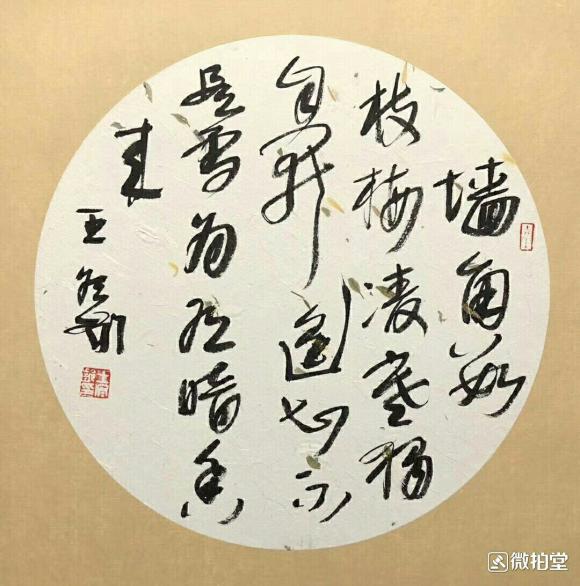 墙角数
枝梅凌寒独
自开遥知不
是雪为有暗香
来
王
微拍堂